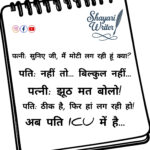 Shayari
Writer
पत्नी: सुनिए जी, मैं मोटी लग रही हूं क्या?
पति: नहीं तो... बिल्कुल नहीं...
पत्नी: झूठ मत बोलो!
पति: ठीक है, फिर हां लग रही हो!
अब पति ICU में है...